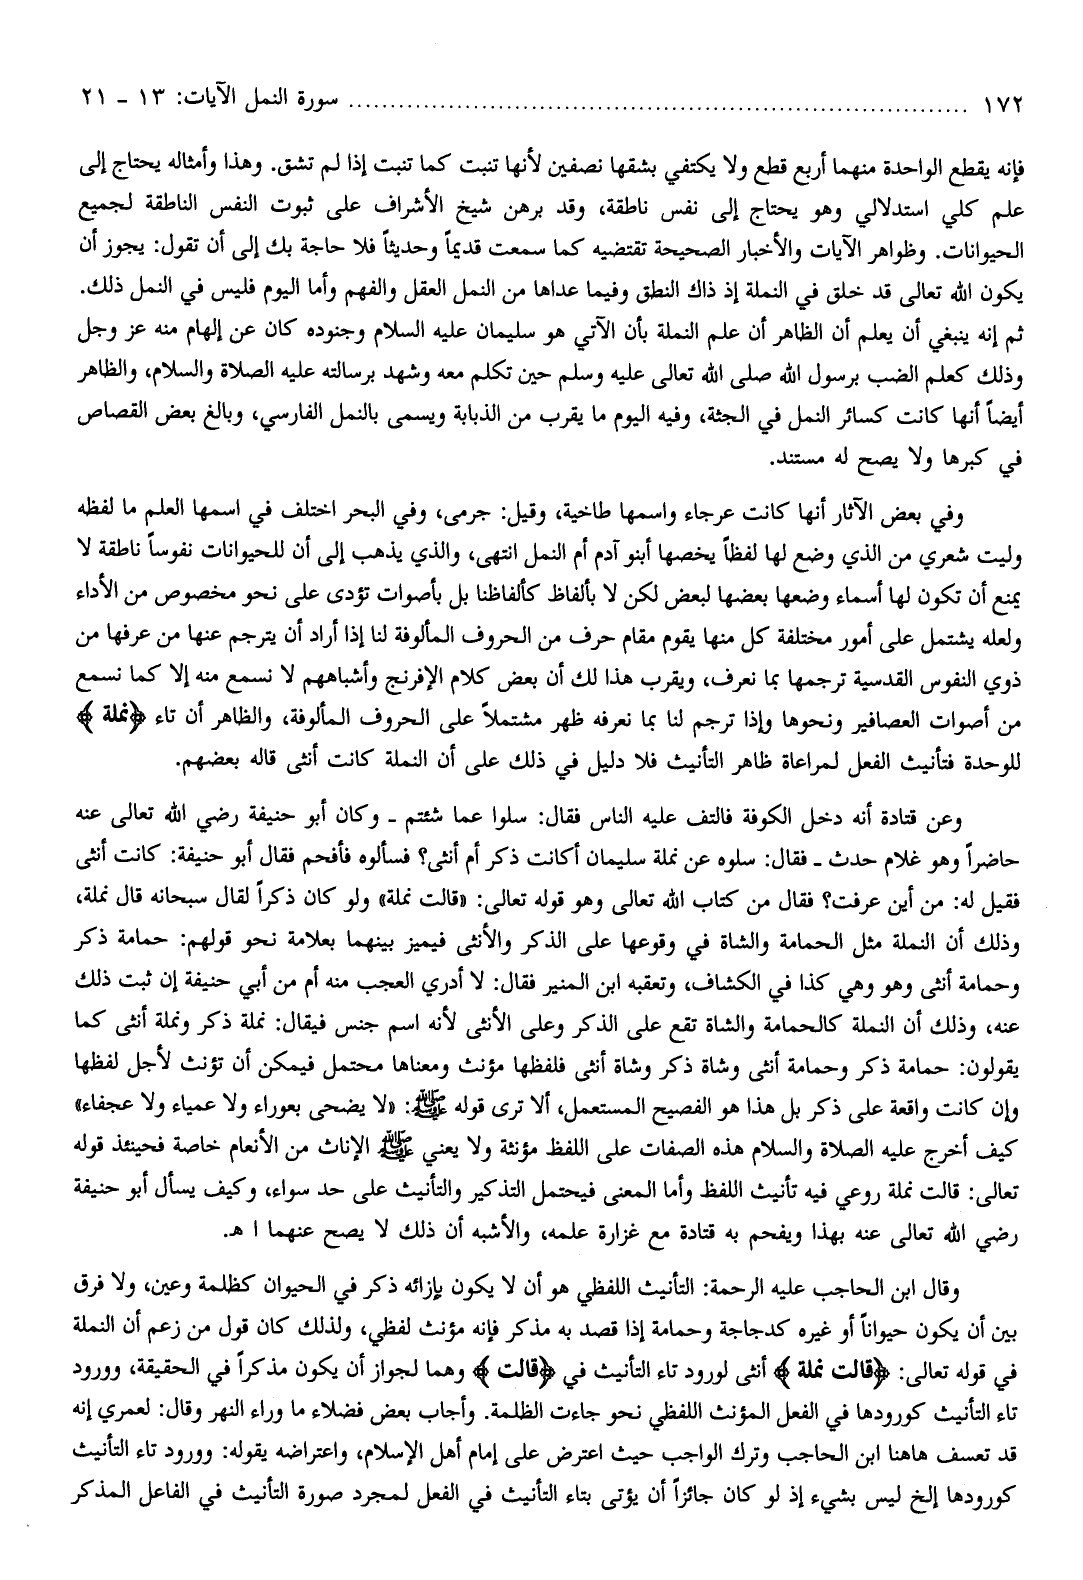 ١٧٢ ........................................................ سورة النمل الآيات: ١٣ ـ ٢١
فإنه يقطع الواحدة منهما أربع قطع ولا يكتفي بشقها نصفين لأنها تنبت كما تنبت إذا لم تشق. وهذا وأمثاله يحتاج إلى
علم كلي استدلالي وهو يحتاج إلى نفس ناطقة، وقد برهن شيخ الأشراف على ثبوت النفس الناطقة لجميع
الحيوانات. وظواهر الآيات والأخبار الصحيحة تقتضيه كما سمعت قديماً وحديثاً فلا حاجة بك إلى أن تقول: يجوز أن
يكون الله تعالى قد خلق في النملة إذ ذاك النطق وفيما عداها من النمل العقل والفهم وأما اليوم فليس في النمل ذلك.
ثم إنه ينبغي أن يعلم أن الظاهر أن علم النملة بأن الآتي هو سليمان عليه السلام وجنوده كان عن إلهام منه عز وجل
وذلك كعلم الضب برسول الله صلى الله تعالى عليه وسلم حين تكلم معه وشهد برسالته عليه الصلاة والسلام، والظاهر
أيضاً أنها كانت كسائر النمل في الجثة، وفيه اليوم ما يقرب من الذبابة ويسمى بالنمل الفارسي، وبالغ بعض القصاص
في كبرها ولا يصح له مستند.
وفي بعض الآثار أنها كانت عرجاء واسمها طاخية، وقيل: جرمى، وفي البحر اختلف في اسمها العلم ما لفظه
وليت شعري من الذي وضع لها لفظاً يخصها أبنو آدم أم النمل انتهى، والذي يذهب إلى أن للحيوانات نفوساً ناطقة لا
يمنع أن تكون لها أسماء وضعها بعضها لبعض لكن لا بألفاظ كألفاظنا بل بأصوات تؤدى على نحو مخصوص من الأداء
ولعله يشتمل على أمور مختلفة كل منها يقوم مقام حرف من الحروف المألوفة لنا إذا أراد أن يترجم عنها من عرفها من
ذوي النفوس القدسية ترجمها بما نعرف، ويقرب هذا لك أن بعض كلام الإفرنج وأشباههم لا نسمع منه إلا كما نسمع
من أصوات العصافير ونحوها وإذا ترجم لنا بما نعرفه ظهر مشتملاً على الحروف المألوفة، والظاهر أن تاء ﴿نملة﴾
للوحدة فتأنيث الفعل لمراعاة ظاهر التأنيث فلا دليل في ذلك على أن النملة كانت أنثى قاله بعضهم.
وعن قتادة أنه دخل الكوفة فالتف عليه الناس فقال: سلوا عما شئتم ـ وكان أبو حنيفة رضي الله تعالى عنه
حاضراً وهو غلام حدث ـ فقال: سلوه عن نملة سليمان أكانت ذكر أم أنثى؟ فسألوه فأفحم فقال أبو حنيفة: كانت أنثى
فقيل له: من أين عرفت؟ فقال من كتاب الله تعالى وهو قوله تعالى: «قالت نملة» ولو كان ذكراً لقال سبحانه قال نملة،
وذلك أن النملة مثل الحمامة والشاة في وقوعها على الذكر والأنثى فيميز بينهما بعلامة نحو قولهم: حمامة ذكر
وحمامة أنثى وهو وهي كذا في الكشاف، وتعقبه ابن المنير فقال: لا أدري العجب منه أم من أبي حنيفة إن ثبت ذلك
عنه، وذلك أن النملة كالحمامة والشاة تقع على الذكر وعلى الأنثى لأنه اسم جنس فيقال: نملة ذكر ونملة أنثى كما
يقولون: حمامة ذكر وحمامة أنثى وشاة ذكر وشاة أنثى فلفظها مؤنث ومعناها محتمل فيمكن أن تؤنث لأجل لفظها
وإن كانت واقعة على ذكر بل هذا هو الفصيح المستعمل، ألا ترى قوله ﷺ: «لا يضحى بعوراء ولا عمياء ولا عجفاء»
كيف أخرج عليه الصلاة والسلام هذه الصفات على اللفظ مؤنثة ولا يعني ﷺ الإناث من الأنعام خاصة فحينئذ قوله
تعالى: قالت نملة روعي فيه تأنيث اللفظ وأما المعنى فيحتمل التذكير والتأنيث على حد سواء، وكيف يسأل أبو حنيفة
رضي الله تعالى عنه بهذا ويفحم به قتادة مع غزارة علمه، والأشبه أن ذلك لا يصح عنهما ا هـ.
وقال ابن الحاجب عليه الرحمة: التأنيث اللفظي هو أن لا يكون بإزائه ذكر في الحيوان كظلمة وعين، ولا فرق
بين أن يكون حيواناً أو غيره كدجاجة وحمامة إذا قصد به مذكر فإنه مؤنث لفظي، ولذلك كان قول من زعم أن النملة
في قوله تعالى: ﴿قالت نملة﴾ أنثى لورود تاء التأنيث في ﴿قالت﴾ وهما لجواز أن يكون مذكراً في الحقيقة، وورود
تاء التأنيث كورودها في الفعل المؤنث اللفظي نحو جاءت الظلمة. وأجاب بعض فضلاء ما وراء النهر وقال: لعمري إنه
قد تعسف هاهنا ابن الحاجب وترك الواجب حيث اعترض على إمام أهل الإسلام، واعتراضه يقوله: وورود تاء التأنيث
كورودها إلخ ليس بشيء إذ لو كان جائزاً أن يؤتى بتاء التأنيث في الفعل لمجرد صورة التأنيث في الفاعل المذكر